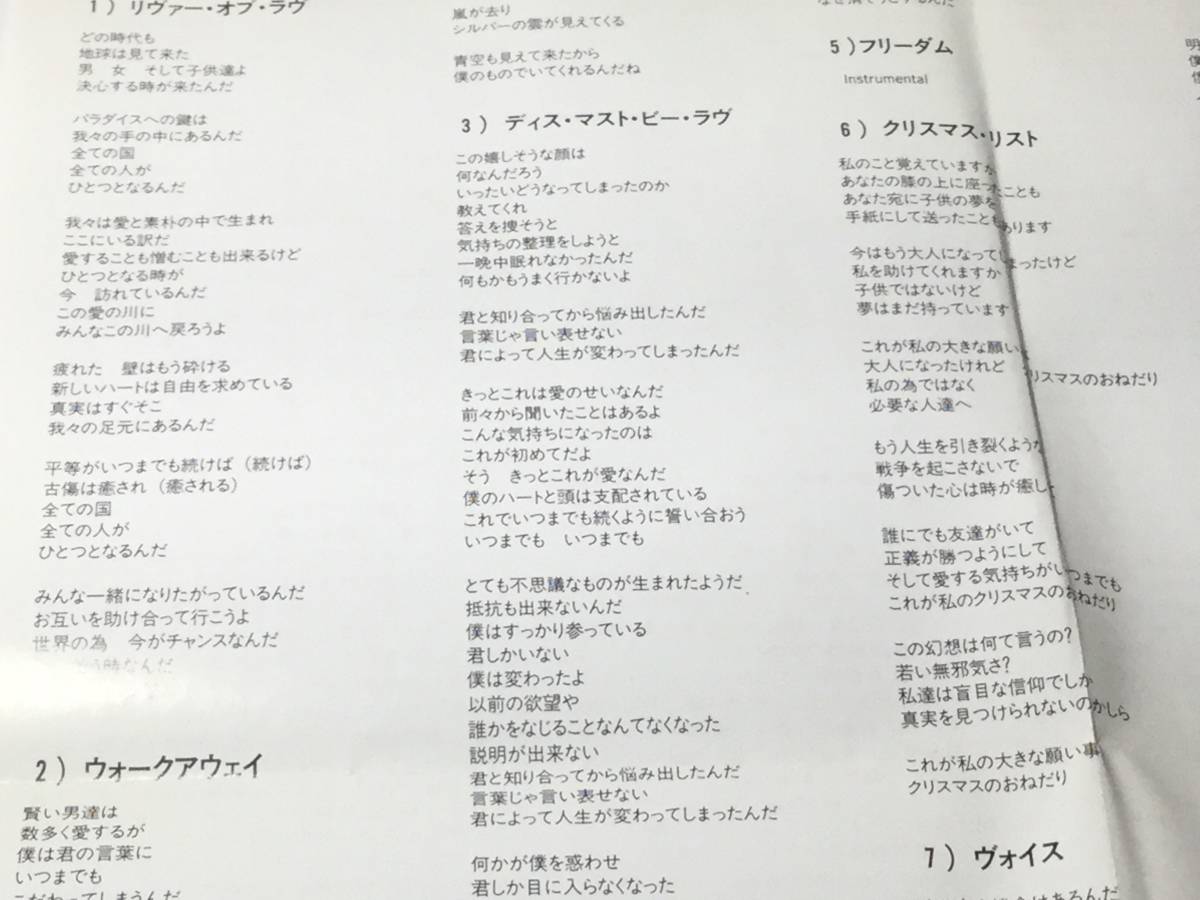 1）リヴァー・オブ・ラヴ
どの時代も
地球は見て来た
男　女　そして子供達よ
決心する時が来たんだ
パラダイスへの鍵は
我々の手の中にあるんだ
全ての国
全ての人が
ひとつとなるんだ
我々は愛と素朴の中で生まれ
ここにいる訳だ
愛することも憎むことも出来るけど
ひとつとなる時が
今　訪れているんだ
この愛の川に
みんなこの川へ戻ろうよ
疲れた　壁はもう砕ける
新しいハートは自由を求めている
真実はすぐそこ
我々の足元にあるんだ
平等がいつまでも続けば（続けば）
古傷は癒され（癒される）
全ての国
全ての人が
ひとつとなるんだ
みんな一緒になりたがっているんだ
お互いを助け合って行こうよ
世界の為　今がチャンスなんだ
時なんだ
2）ウォークアウェイ
賢い男達は
数多く愛するが
僕は君の言葉に
いつまでも
こだわってしまうんだ
嵐が去り
シルバーの雲が見えてくる
青空も見えて来たから
僕のものでいてくれるんだね
3）ディス・マスト・ビー・ラヴ
この嬉しそうな顔は
何なんだろう
いったいどうなってしまったのか
教えてくれ
答えを捜そうと
気持ちの整理をしようと
一晩中眠れなかったんだ
何もかもうまく行かないよ
君と知り合ってから悩み出したんだ
言葉じゃ言い表せない
君によって人生が変わってしまったんだ
きっとこれは愛のせいなんだ
前々から聞いたことはあるよ
こんな気持ちになったのは
これが初めてだよ
そう　きっとこれが愛なんだ
僕のハートと頭は支配されている
これでいつまでも続くように誓い合おう
いつまでも　いつまでも
とても不思議なものが生まれたようだ
抵抗も出来ないんだ
僕はすっかり参っている
君しかいない
僕は変わったよ
以前の欲望や
誰かをなじることなんてなくなった
説明が出来ない
君と知り合ってから悩み出したんだ
言葉じゃ言い表せない
君によって人生が変わってしまったんだ
何かが僕を惑わせ
君しか目に入らなくなった
5）フリーダム
Instrumental
6）クリスマス・リスト
私のこと覚えていますか
あなたの膝の上に座ったことも
あなた宛に子供の夢を
手紙にして送ったこともあります
今はもう大人になってしまったけど
私を助けてくれますか
子供ではないけど
夢はまだ持っています
これが私の大きな願い
大人になったけれど　リスマスのおねだり
私の為ではなく
必要な人達へ
もう人生を引き裂くような
戦争を起こさないで
傷ついた心は時が癒し
誰にでも友達がいて
正義が勝つようにして
そして愛する気持ちがいつまでも
これが私のクリスマスのおねだり
この幻想は何て言うの?
若い無邪気さ?
私達は盲目な信仰でしか
真実を見つけられないのかしら
これが私の大きな願い事
クリスマスのおねだり
7）ヴォイス
明
僕